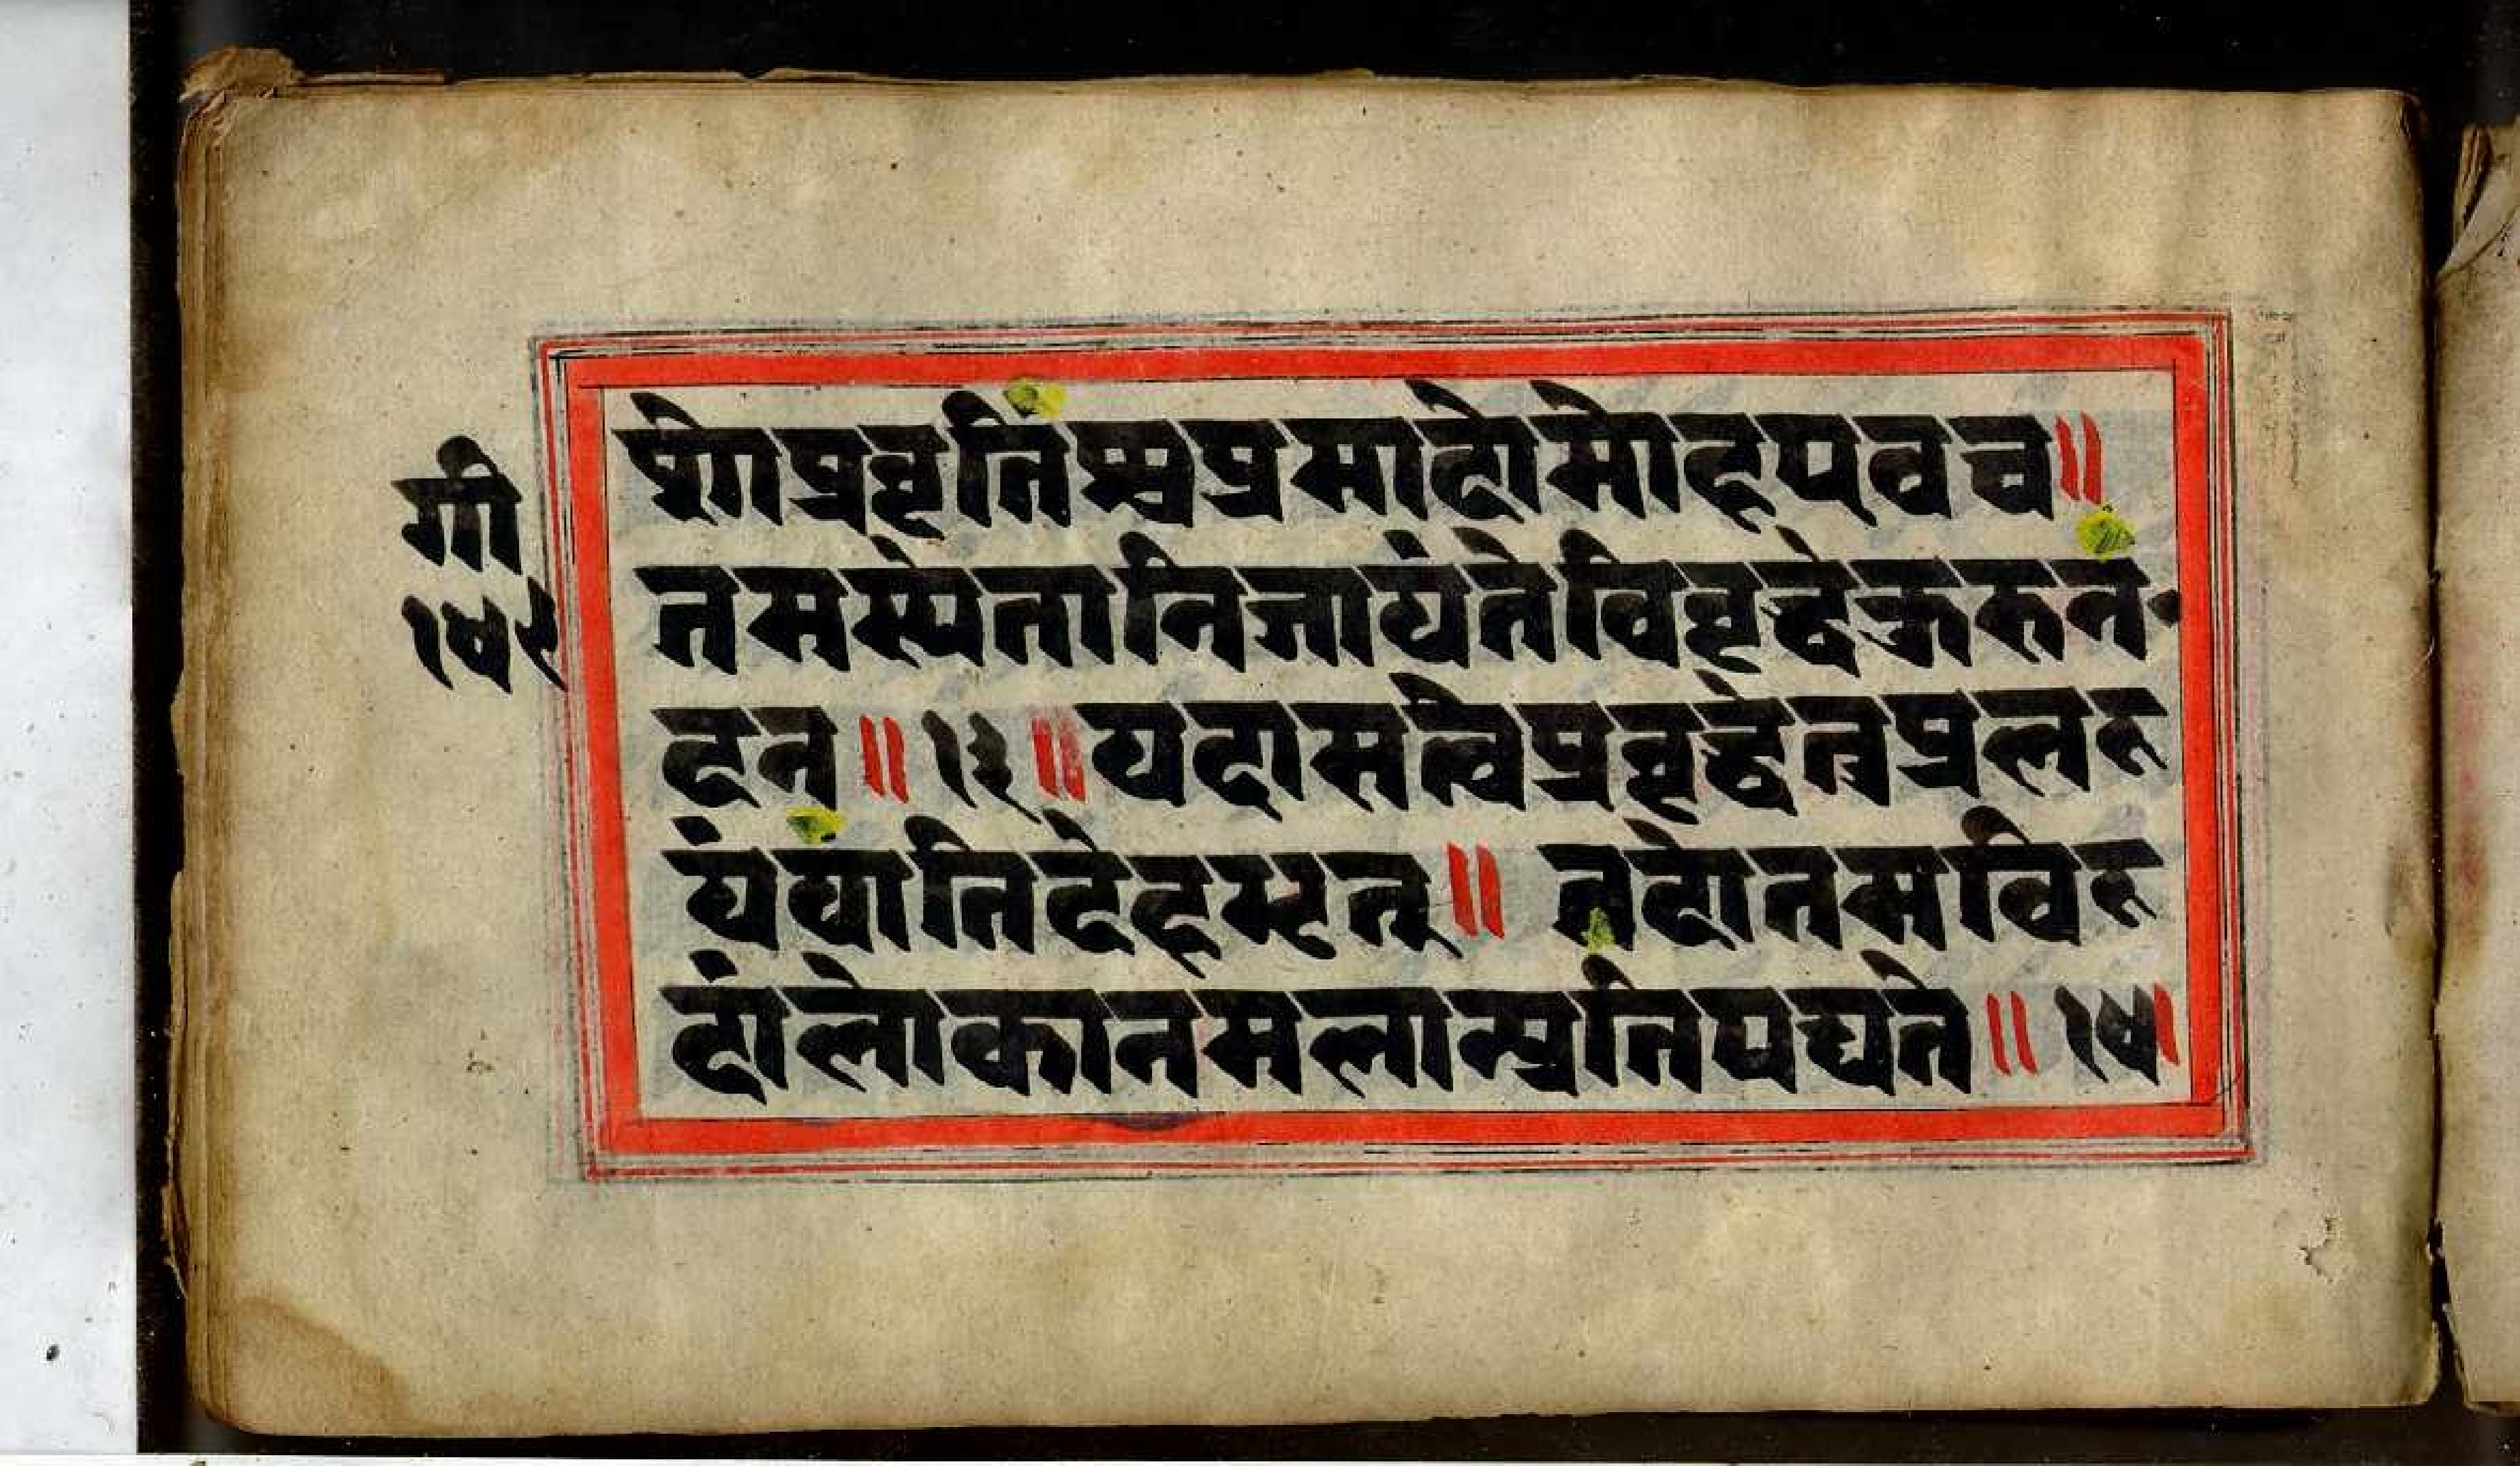 गी
१४९
शोप्रवृतिश्चप्रमादोमोहएवच॥
तमस्येतानिजायंतेविवृद्धेकुरुनं
दन॥१३॥यदासत्वेप्रवृद्धेतुप्रलर
यंयातिदेहभृत्॥तदोतमविर
दांलोकानमलान्प्रतिपद्यते॥१४॥